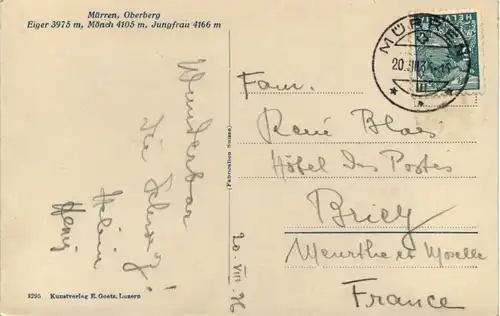 Mürren, Oberberg
Eiger 3975 m, Mönch 4105 m, Jungfrau 4166 m
Wunderbar
die Schweiz!
(Fabrication Suisse)
20. VIII. 36
MÜRREN
20.VIII.36
HELVETIA
Fam.
René Blaes
Hôtel des Postes
Briey
Meurthe et Moselle
France
8295 Kunstverlag E. Goetz, Luzern